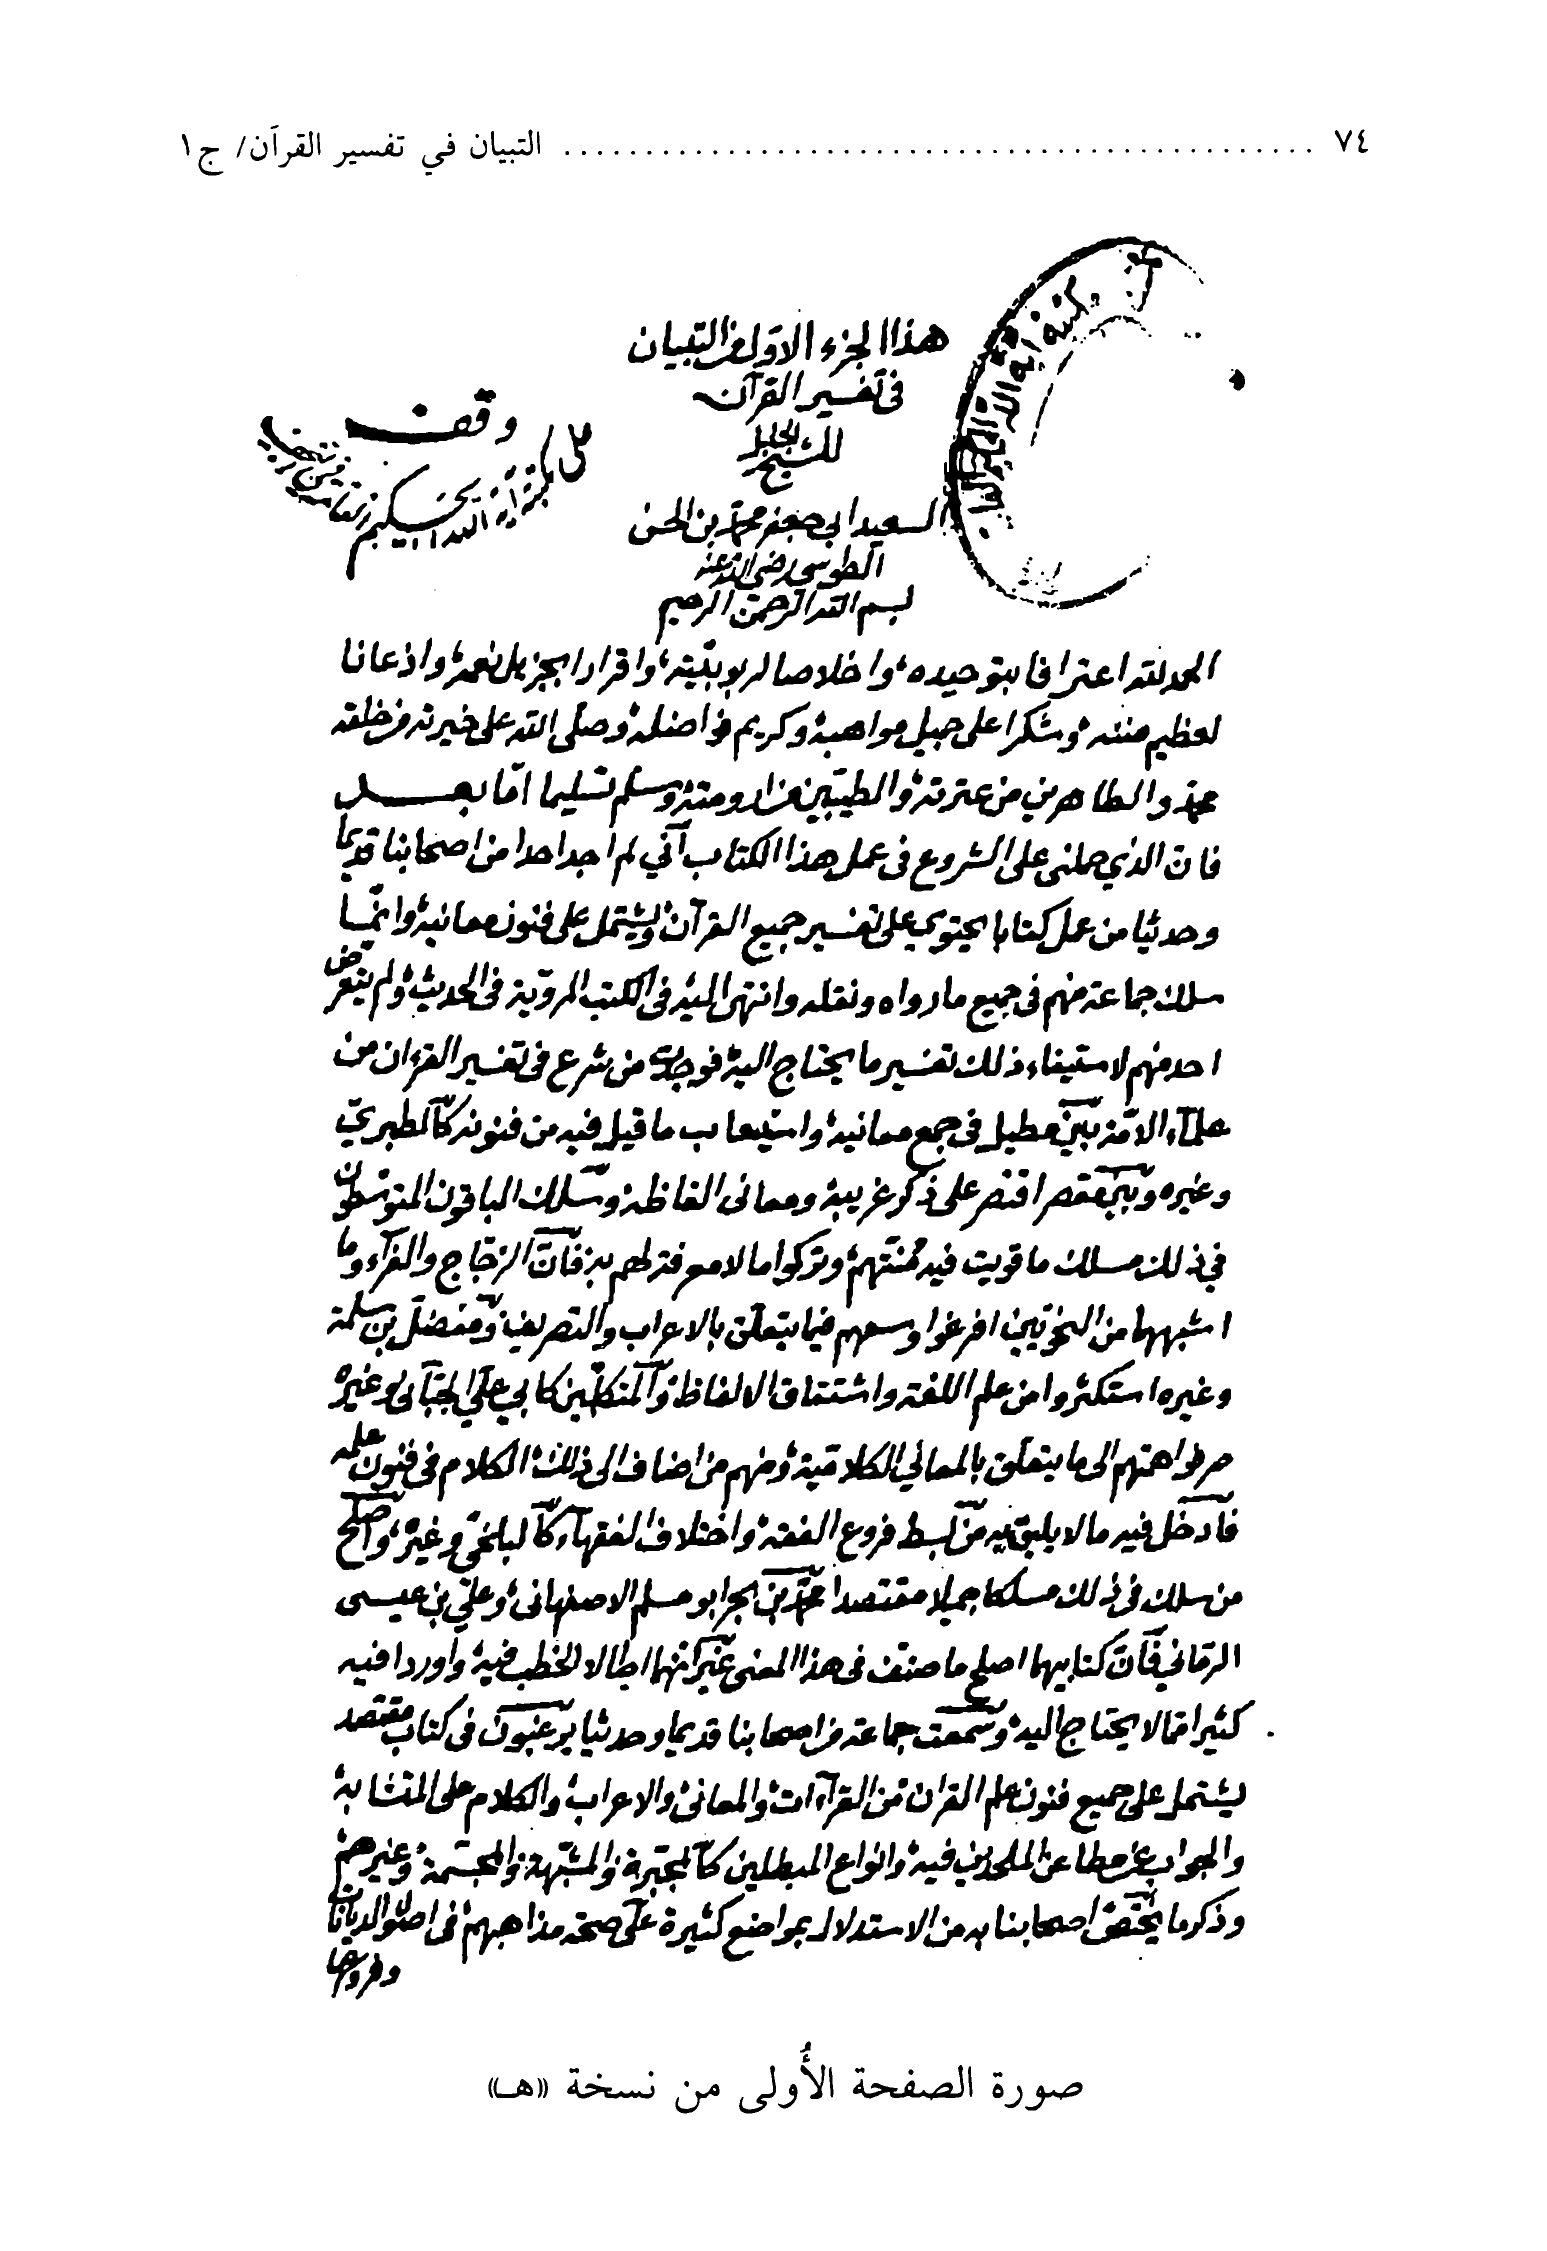 ٧٤ ........................................................ التبيان في تفسير القرآن/ ج١
هذا الجزء الاول من التبيان
فى تفسير القرآن
للشيخ الجليل
السعيد ابى جعفر محمد بن الحسن
الطوسى رضى الله عنه
بسم الله الرحمن الرحيم
وقف
على مكتبة آية الله الحكيم
الحمد لله اعترافا بتوحيده، واخلاصا لربوبيّته، واقرارا بجزيل نعمه، واذعانا
لعظيم مننه، وشكرا على جميل مواهبه، وكريم فواضله، وصلّى الله على خيرته من خلقه
محمد والطاهرين من عترته، والطيبّين من ارومته، وسلم تسليما امّا بعد
فان الذي حملنى على الشروع فى عمل هذا الكتاب أنّي لم اجد احدا من اصحابنا قديما
وحديثا من عمل كتابا يحتوي على تفسير جميع القرآن، ويشتمل على فنون معانيه، وانّما
سلك جماعة منهم فى جميع ما رواه ونقله وانتهى اليه فى الكتب المرويّة فى الحديث، ولم يتعرض
احد منهم لاستيفاء ذلك تفسير ما يحتاج اليه، فوجدت من شرع فى تفسير القرءان من
علمآء الامّة بين مطيل فى جمع معانيه، واستيعاب ما قيل فيه من فنونه كالطبريّ
وغيره وبين مقصر اقتصر على ذكر غريبه، ومعانى الفاظه، وسلك الباقون المتوسّطون
في ذلك مسلك ما قويت فيه منّتهم، وتركوا ما لا معرفة لهم به، فانّ الزجّاج والفرّاء وما
اشبههما من النحويّين افرغوا وسعهم فيما يتعلّق بالاعراب والتصريف، ومفضل بن سلمة
وغيره استكثروا من علم اللغة واشتقاق الالفاظ، والمتكلّمين كابي عليّ الجبّائى وغيره
صرفوا همتهم الى ما يتعلّق بالمعاني الكلاميّة، ومنهم من اضاف الى ذلك، الكلام فى فنون علمه
فادخل فيه ما لا يليق به من بسط فروع الفقه، واختلاف الفقهآء، كالبلخىّ وغيره، واصلح
من سلك فى ذلك مسلكا جميلا مقتصدا محمّد بن بحر ابو مسلم الاصفهانى، وعليّ بن عيسى
الرمّاني، فانّ كتابيهما اصلح ما صنّف فى هذا المعنى، غير انّهما اطالا الخطب فيه، واوردا فيه
كثيرا ممّا لا يحتاج اليه، وسمعت جماعة من اصحابنا قديما وحديثا يرغبون فى كتاب مقتصد
يشتمل على جميع فنون علم القران، من القرآءات، والمعانى، والاعراب، والكلام على المتشابه،
والجواب عن مطاعن الملحدين فيه، وانواع المبطلين كالمجبّرة، والمشبّهة، والمجسّمة، وغيرهم،
وذكر ما يختص اصحابنا به من الاستدلال بمواضع كثيرة على صحة مذاهبهم، فى اصول الديانات
وفروعها
صورة الصفحة الأُولى من نسخة «هـ»